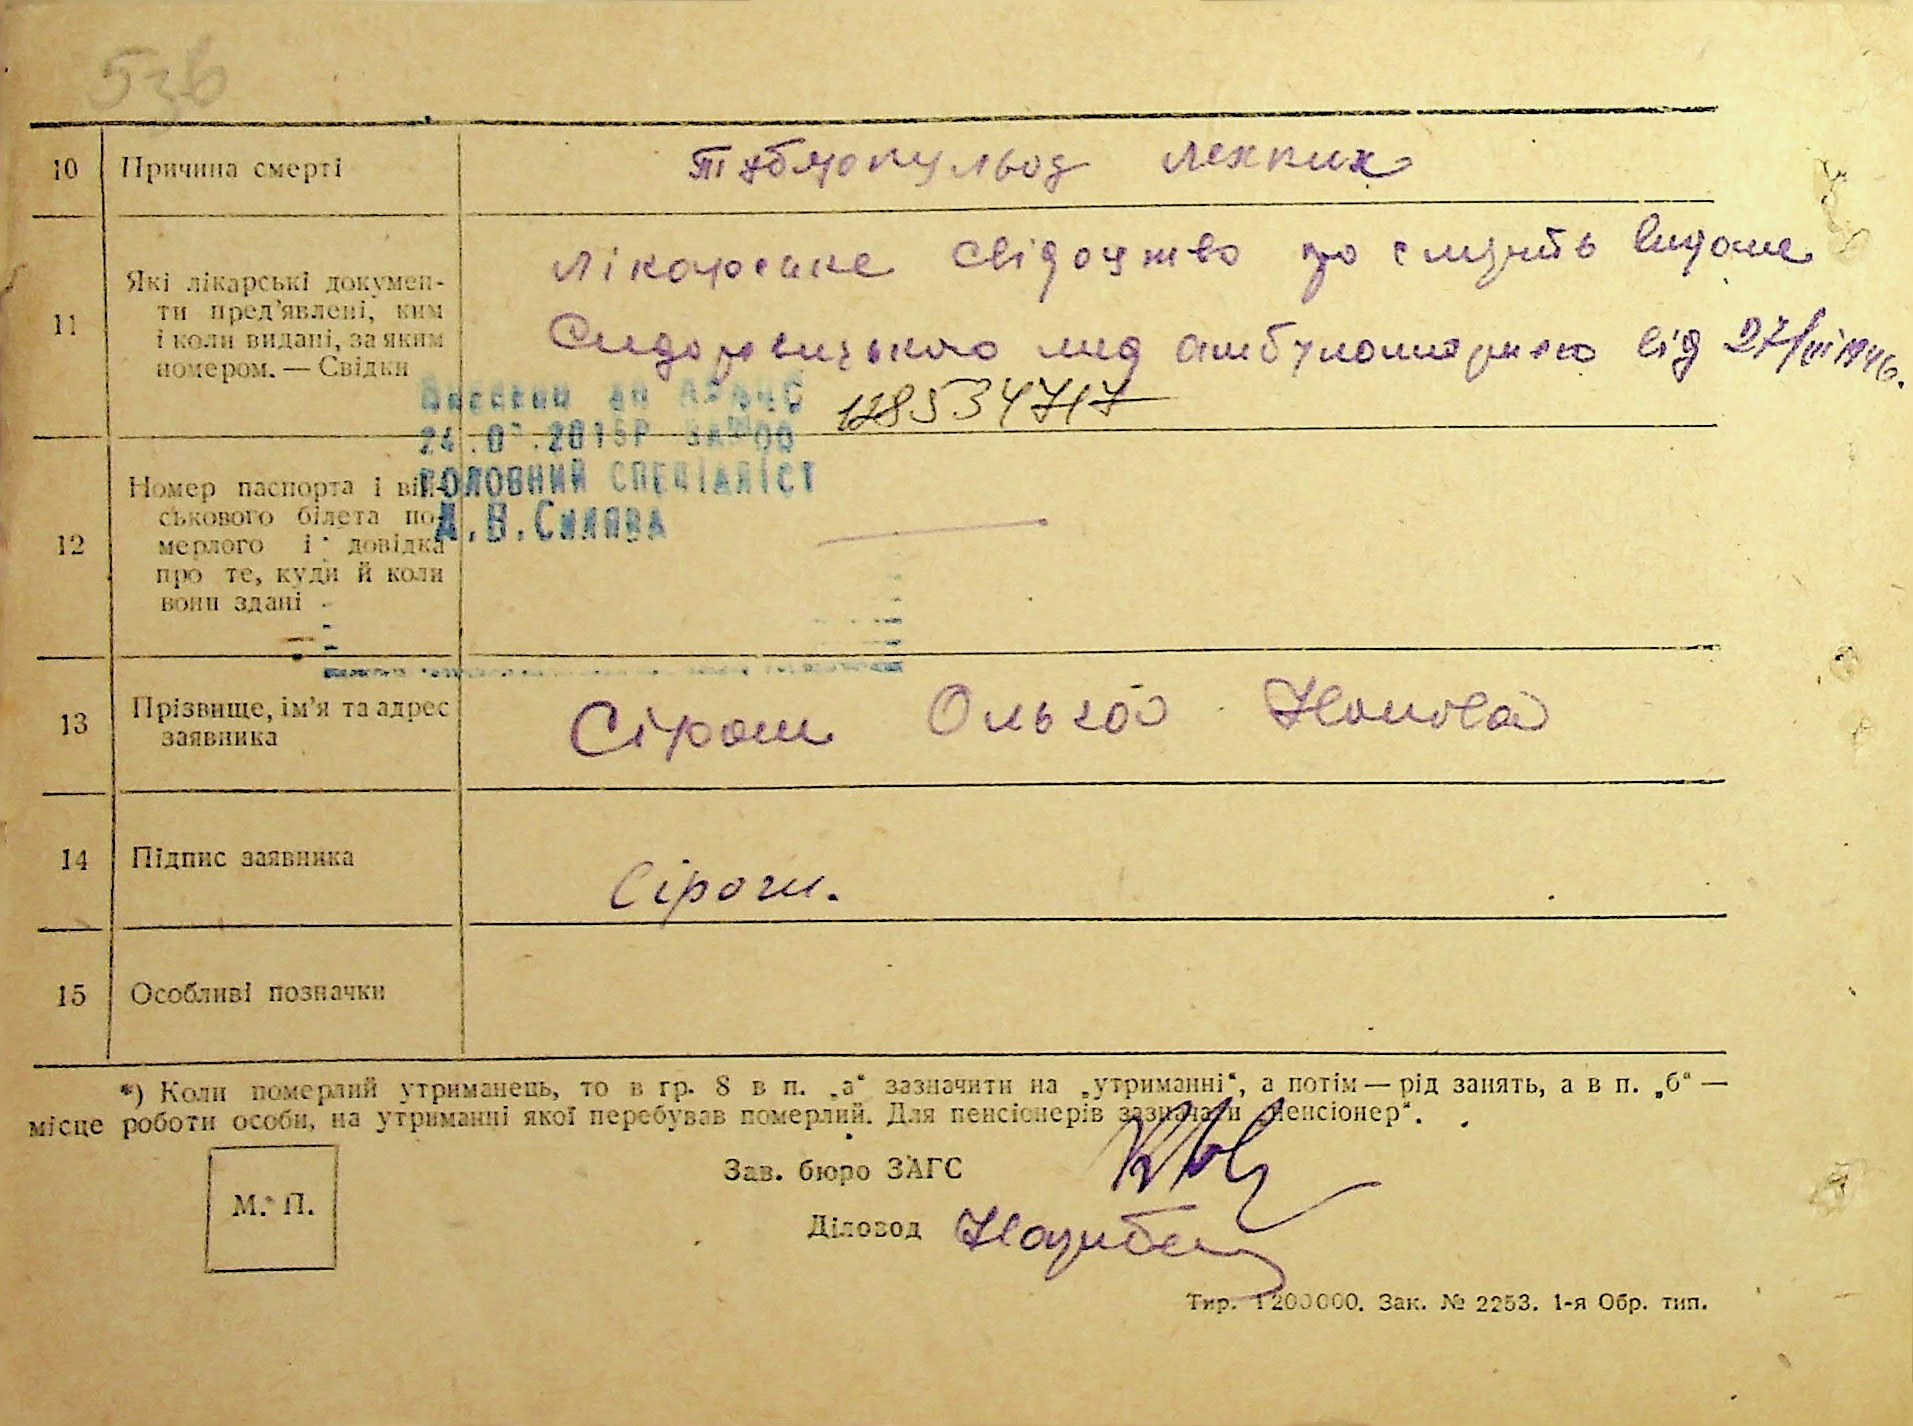 53б
10 Причина смерті туберкульоз легких
11 Які лікарські докумен-
ти пред'явлені, ким
і коли видані, за яким
номером. — Свідки
лікарське свідоцтво про смерть видане
Сидоровицького мед амбулаторією від 27/VII 1946.
128534717
Внесено до
ГОЛОВНИЙ СПЕЦІАЛІСТ
12 Номер паспорта і вій-
ськового білета по-
мерлого і довідка
про те, куди й коли
вони здані
—
13 Прізвище, ім'я та адрес
заявника
Сірош Ольга
14 Підпис заявника
Сірош.
15 Особливі позначки
*) Коли померлий утриманець, то в гр. 8 в п. „а“ зазначити на „утриманні“, а потім — рід занять, а в п. „б“ —
місце роботи особи, на утриманні якої перебував померлий. Для пенсіонерів зазначати „пенсіонер“.
Зав. бюро ЗАГС
М. П.
Діловод
Тир. 1200000. Зак. № 2253. 1-я Обр. тип.